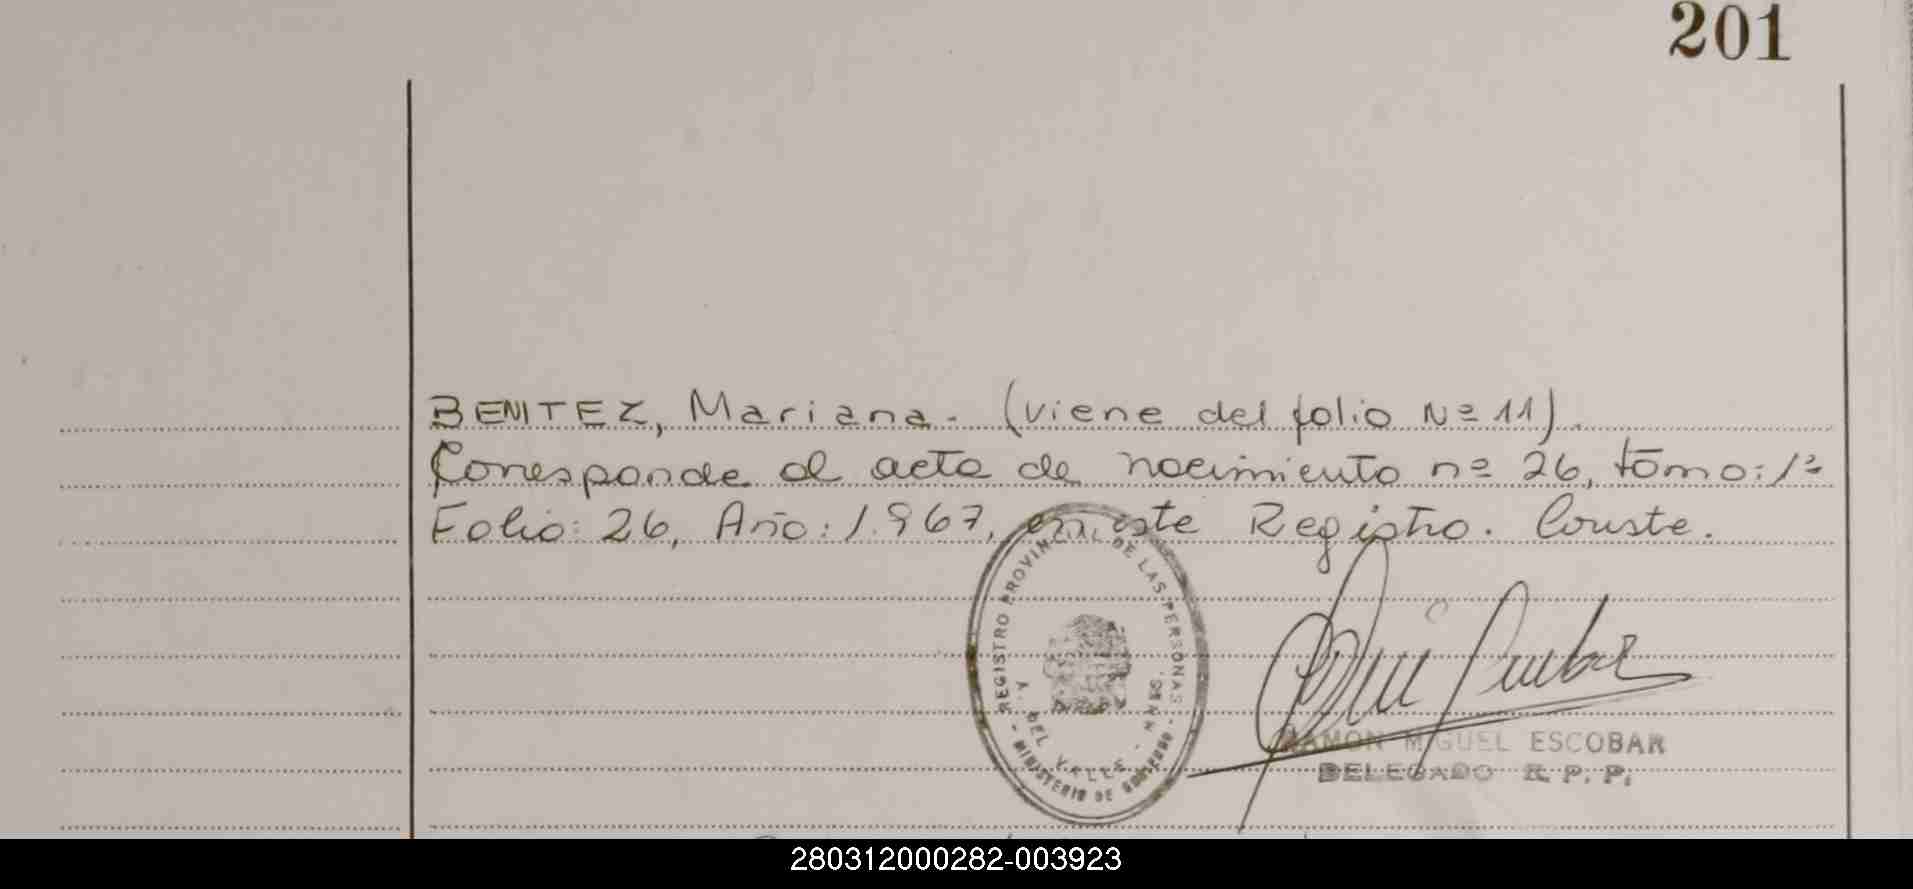 201
BENITEZ, Mariana. (viene del folio Nº 11).
Corresponde al acta de nacimiento nº 26, tomo: 1º
Folio: 26, Año: 1.967, en este Registro. Conste.
REGISTRO PROVINCIAL DE LAS PERSONAS
DEL VALLE
MINISTERIO DE GOBIERNO
RAMON MIGUEL ESCOBAR
DELEGADO R. P. P.
280312000282-003923